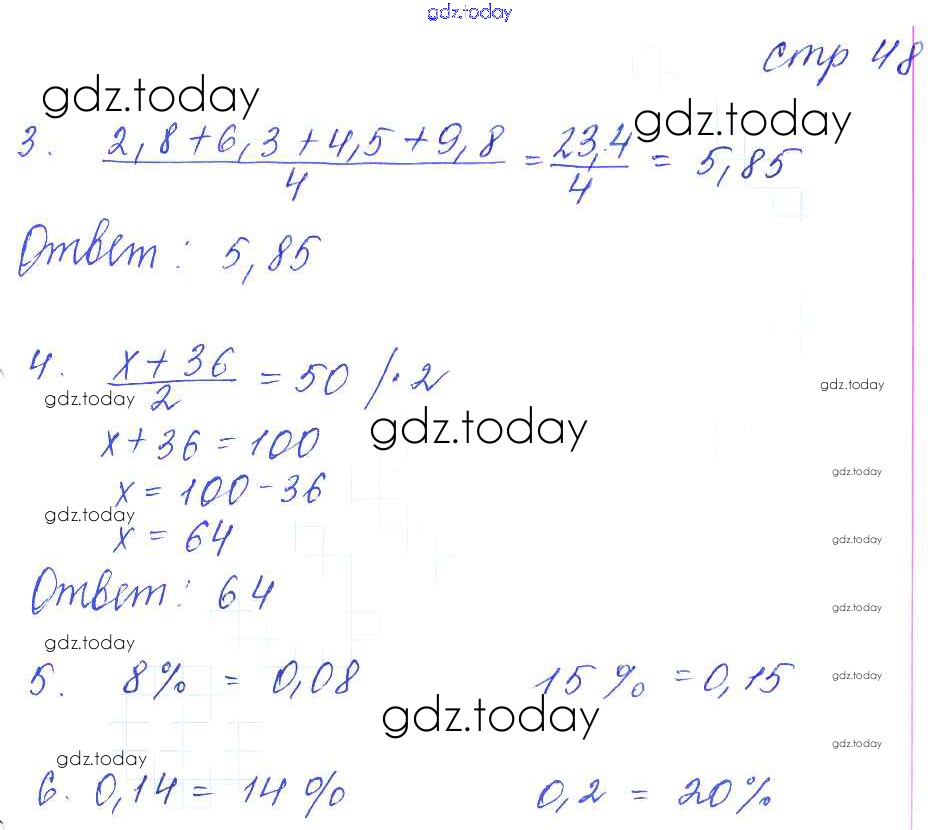 gdz.today
стр 48
gdz.today
gdz.today
3. (2,8+6,3+4,5+9,8)/4 = 23,4/4 = 5,85
Ответ: 5,85
4. (x+36)/2 = 50 /·2
gdz.today
gdz.today
gdz.today
x+36 = 100
gdz.today
x = 100-36
gdz.today
x = 64
gdz.today
Ответ: 64
gdz.today
gdz.today
5. 8% = 0,08 15% = 0,15
gdz.today
gdz.today
gdz.today
gdz.today
6. 0,14 = 14% 0,2 = 20%